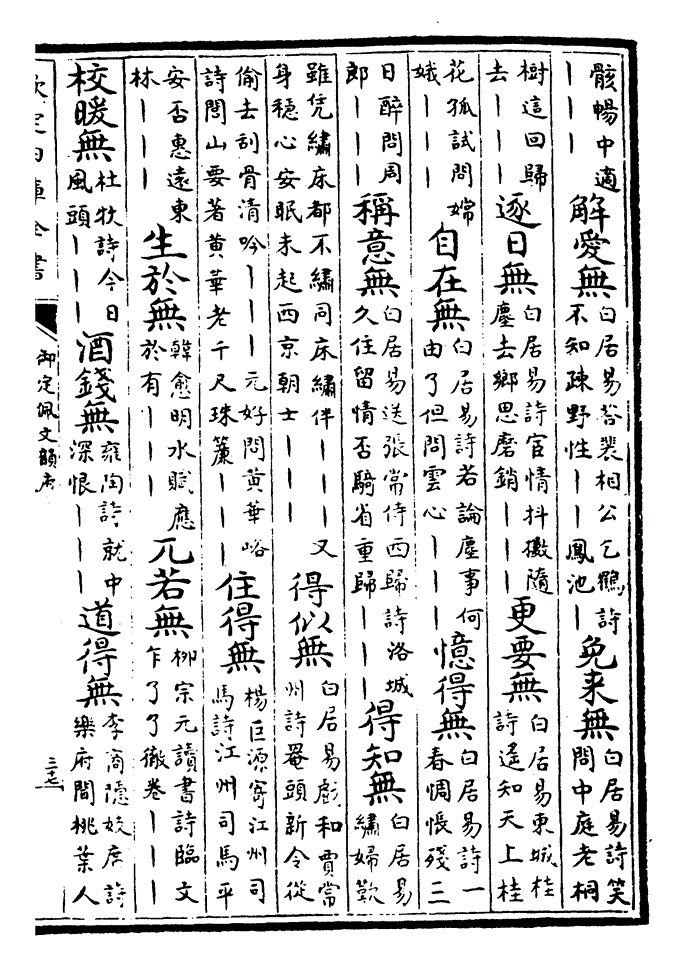 骸暢中適｜｜｜解愛無白居易答裴相公乞鶴詩不知疎野性｜｜鳳池｜免来無白居易詩笑問中庭老桐
樹這回歸去｜｜｜逐日無白居易詩宦情抖擻隨塵去鄉思磨銷｜｜｜更要無白居易東城桂詩遙知天上桂
花孤試問嫦娥｜｜｜自在無白居易詩若論塵事何由了但問雲心｜｜｜憶得無白居易詩一春惆悵殘三
日醉問周郎｜｜｜稱意無白居易送張常侍西歸詩洛城久住留情否騎省重歸｜｜｜得知無白居易繡婦歎
雖凭繡床都不繡同床繡伴｜｜｜又身穩心安眠未起西京朝士｜｜｜得似無白居易戱和賈常州詩罨頭新令從
偷去刮骨清吟｜｜｜元好問黄華峪詩問山要著黄華老千尺珠簾｜｜｜住得無楊巨源寄江州司馬詩江州司馬平
安否惠遠東林｜｜｜生於無韓愈明水賦應於有｜｜｜兀若無柳宗元讀書詩臨文乍了了徹卷｜｜｜
校暖無杜牧詩今日風頭｜｜｜酒錢無雍陶詩就中深恨｜｜｜道得無李商隱妓席詩樂府聞桃葉人
欽定四庫全書
御定佩文韻府
三十七